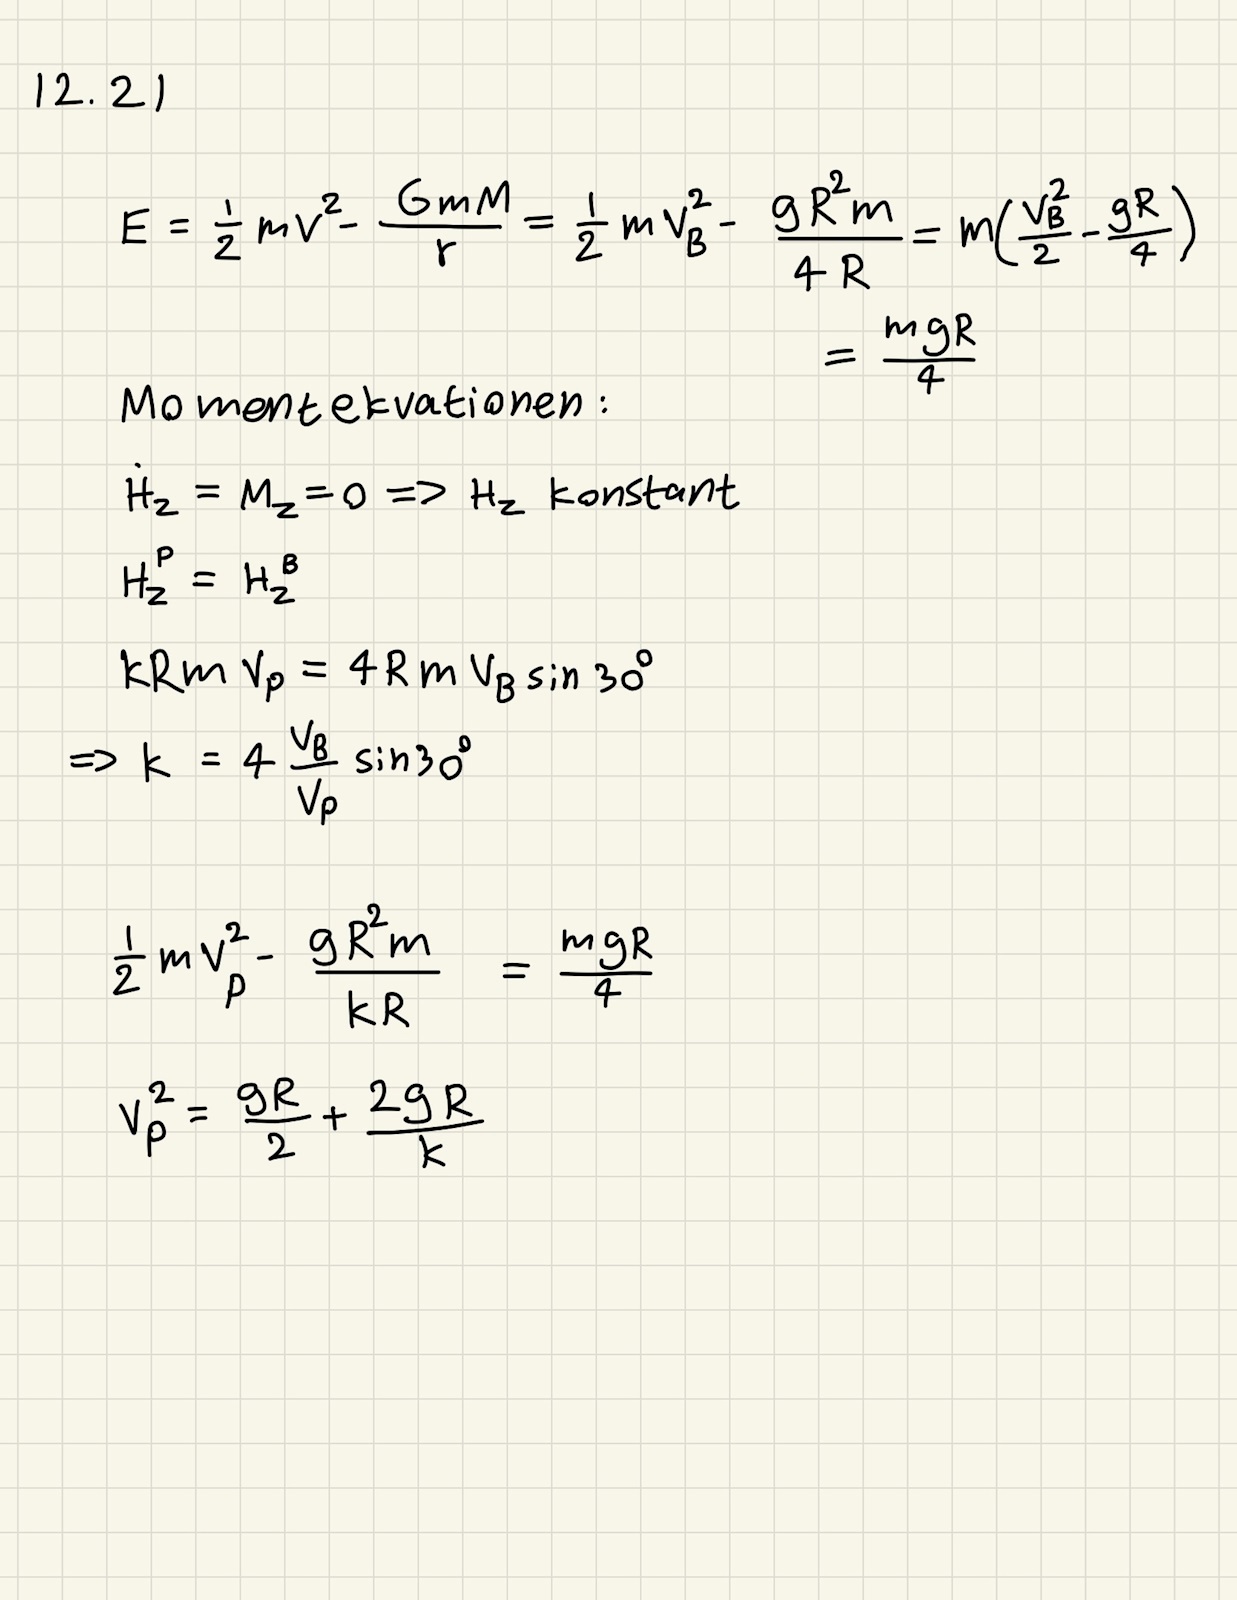 12.21
E = 1/2 mv² - GmM/r = 1/2 mv_B² - gR²m/4R = m(v_B²/2 - gR/4)
= mgR/4
Momentekvationen:
Ḣ_z = M_z = 0 => H_z konstant
H_z^P = H_z^B
kRm v_p = 4Rm v_B sin 30°
=> k = 4 v_B/v_p sin30°
1/2 mv_p² - gR²m/kR = mgR/4
v_p² = gR/2 + 2gR/k